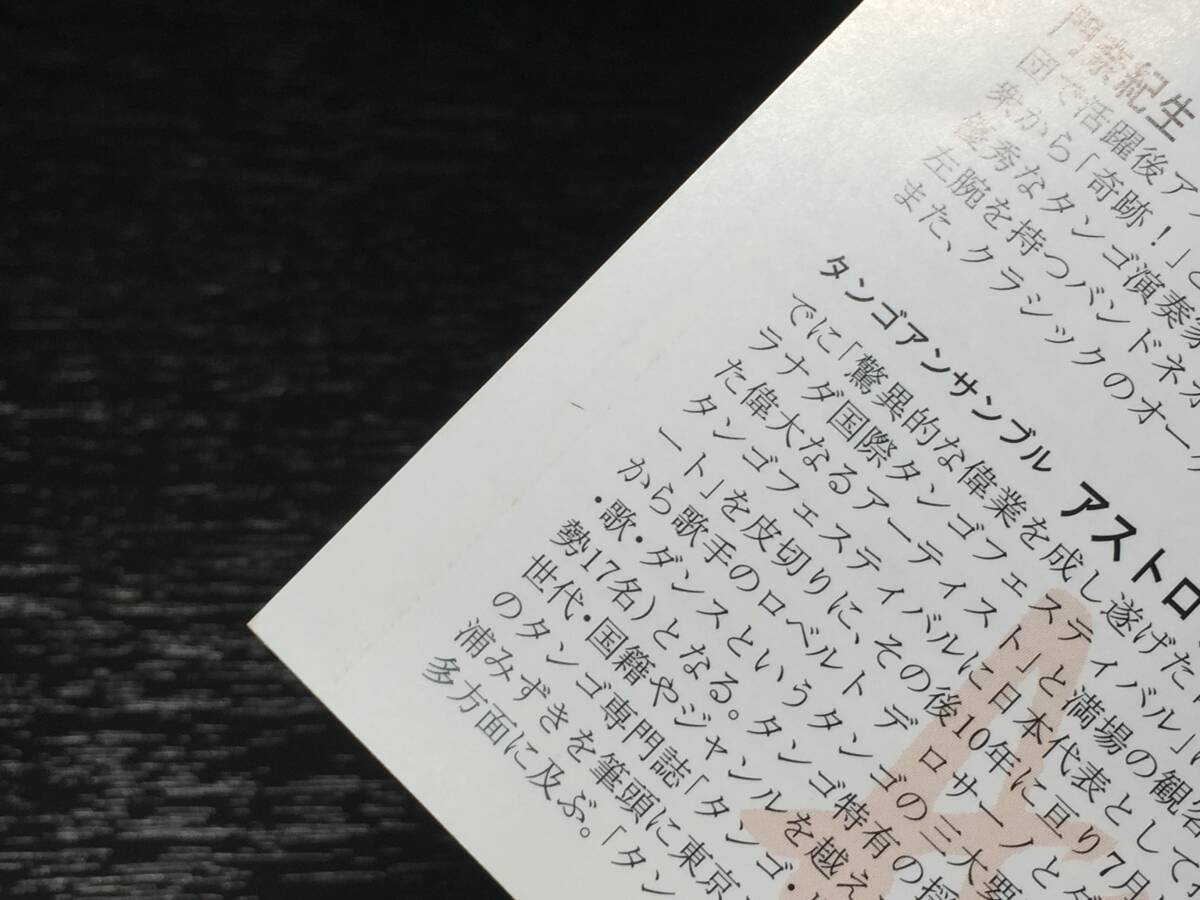 門奈紀生
団で活躍後ア
衆から「奇跡！」と
優秀なタンゴ演奏家
左腕を持つバンドネオ
また、クラシックのオー
タンゴアンサンブル アストロ
でに「驚異的な偉業を成し遂げた
ラナダ国際タンゴフェスティバル」に
た偉大なるアーティスト」と満場の観客
タンゴフェスティバルに日本代表として
ート」を皮切りに、その後10年に亘り7月
から歌手のロベルト デ ロサーノとダ
・歌・ダンスというタンゴの三大要
勢17名)となる。タンゴ特有の
世代・国籍やジャンルを越え
のタンゴ専門誌「タンゴ・
浦みずきを筆頭に東京
多方面に及ぶ。「タン